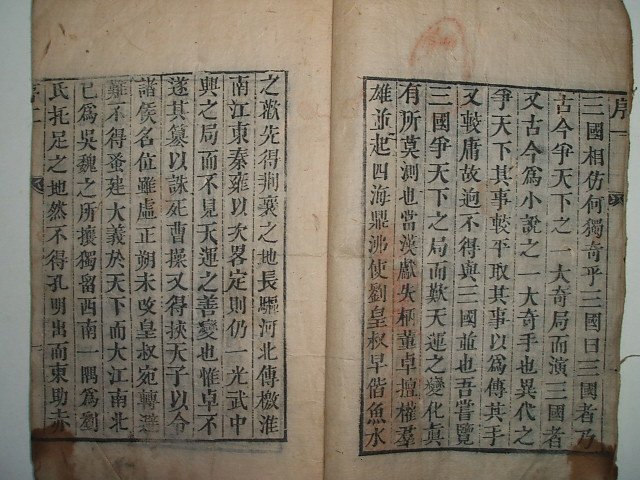 序一
三國相仿何獨奇乎三國曰三國者乃
古今爭天下之一大奇局而演三國者
又古今為小說之一大奇手也異代之
爭天下其事較平取其事以為傳其手
又較庸故逈不得與三國並也吾嘗覽
三國爭天下之局而歎天運之變化真
有所莫測也當漢獻失柄董卓擅權羣
雄並起四海鼎沸使劉皇叔早偕魚水
之歡先得荊襄之地長驅河北傳檄淮
南江東秦雍以次畧定則仍一光武中
興之局而不見天運之善變也惟卓不
遂其篡以誅死曹操又得挾天子以令
諸侯名位雖虛正朔未改皇叔宛轉避
難不得蚤建大義於天下而大江南北
已為吳魏之所攘獨留西南一隅為劉
氏托足之地然不得孔明出而東助赤